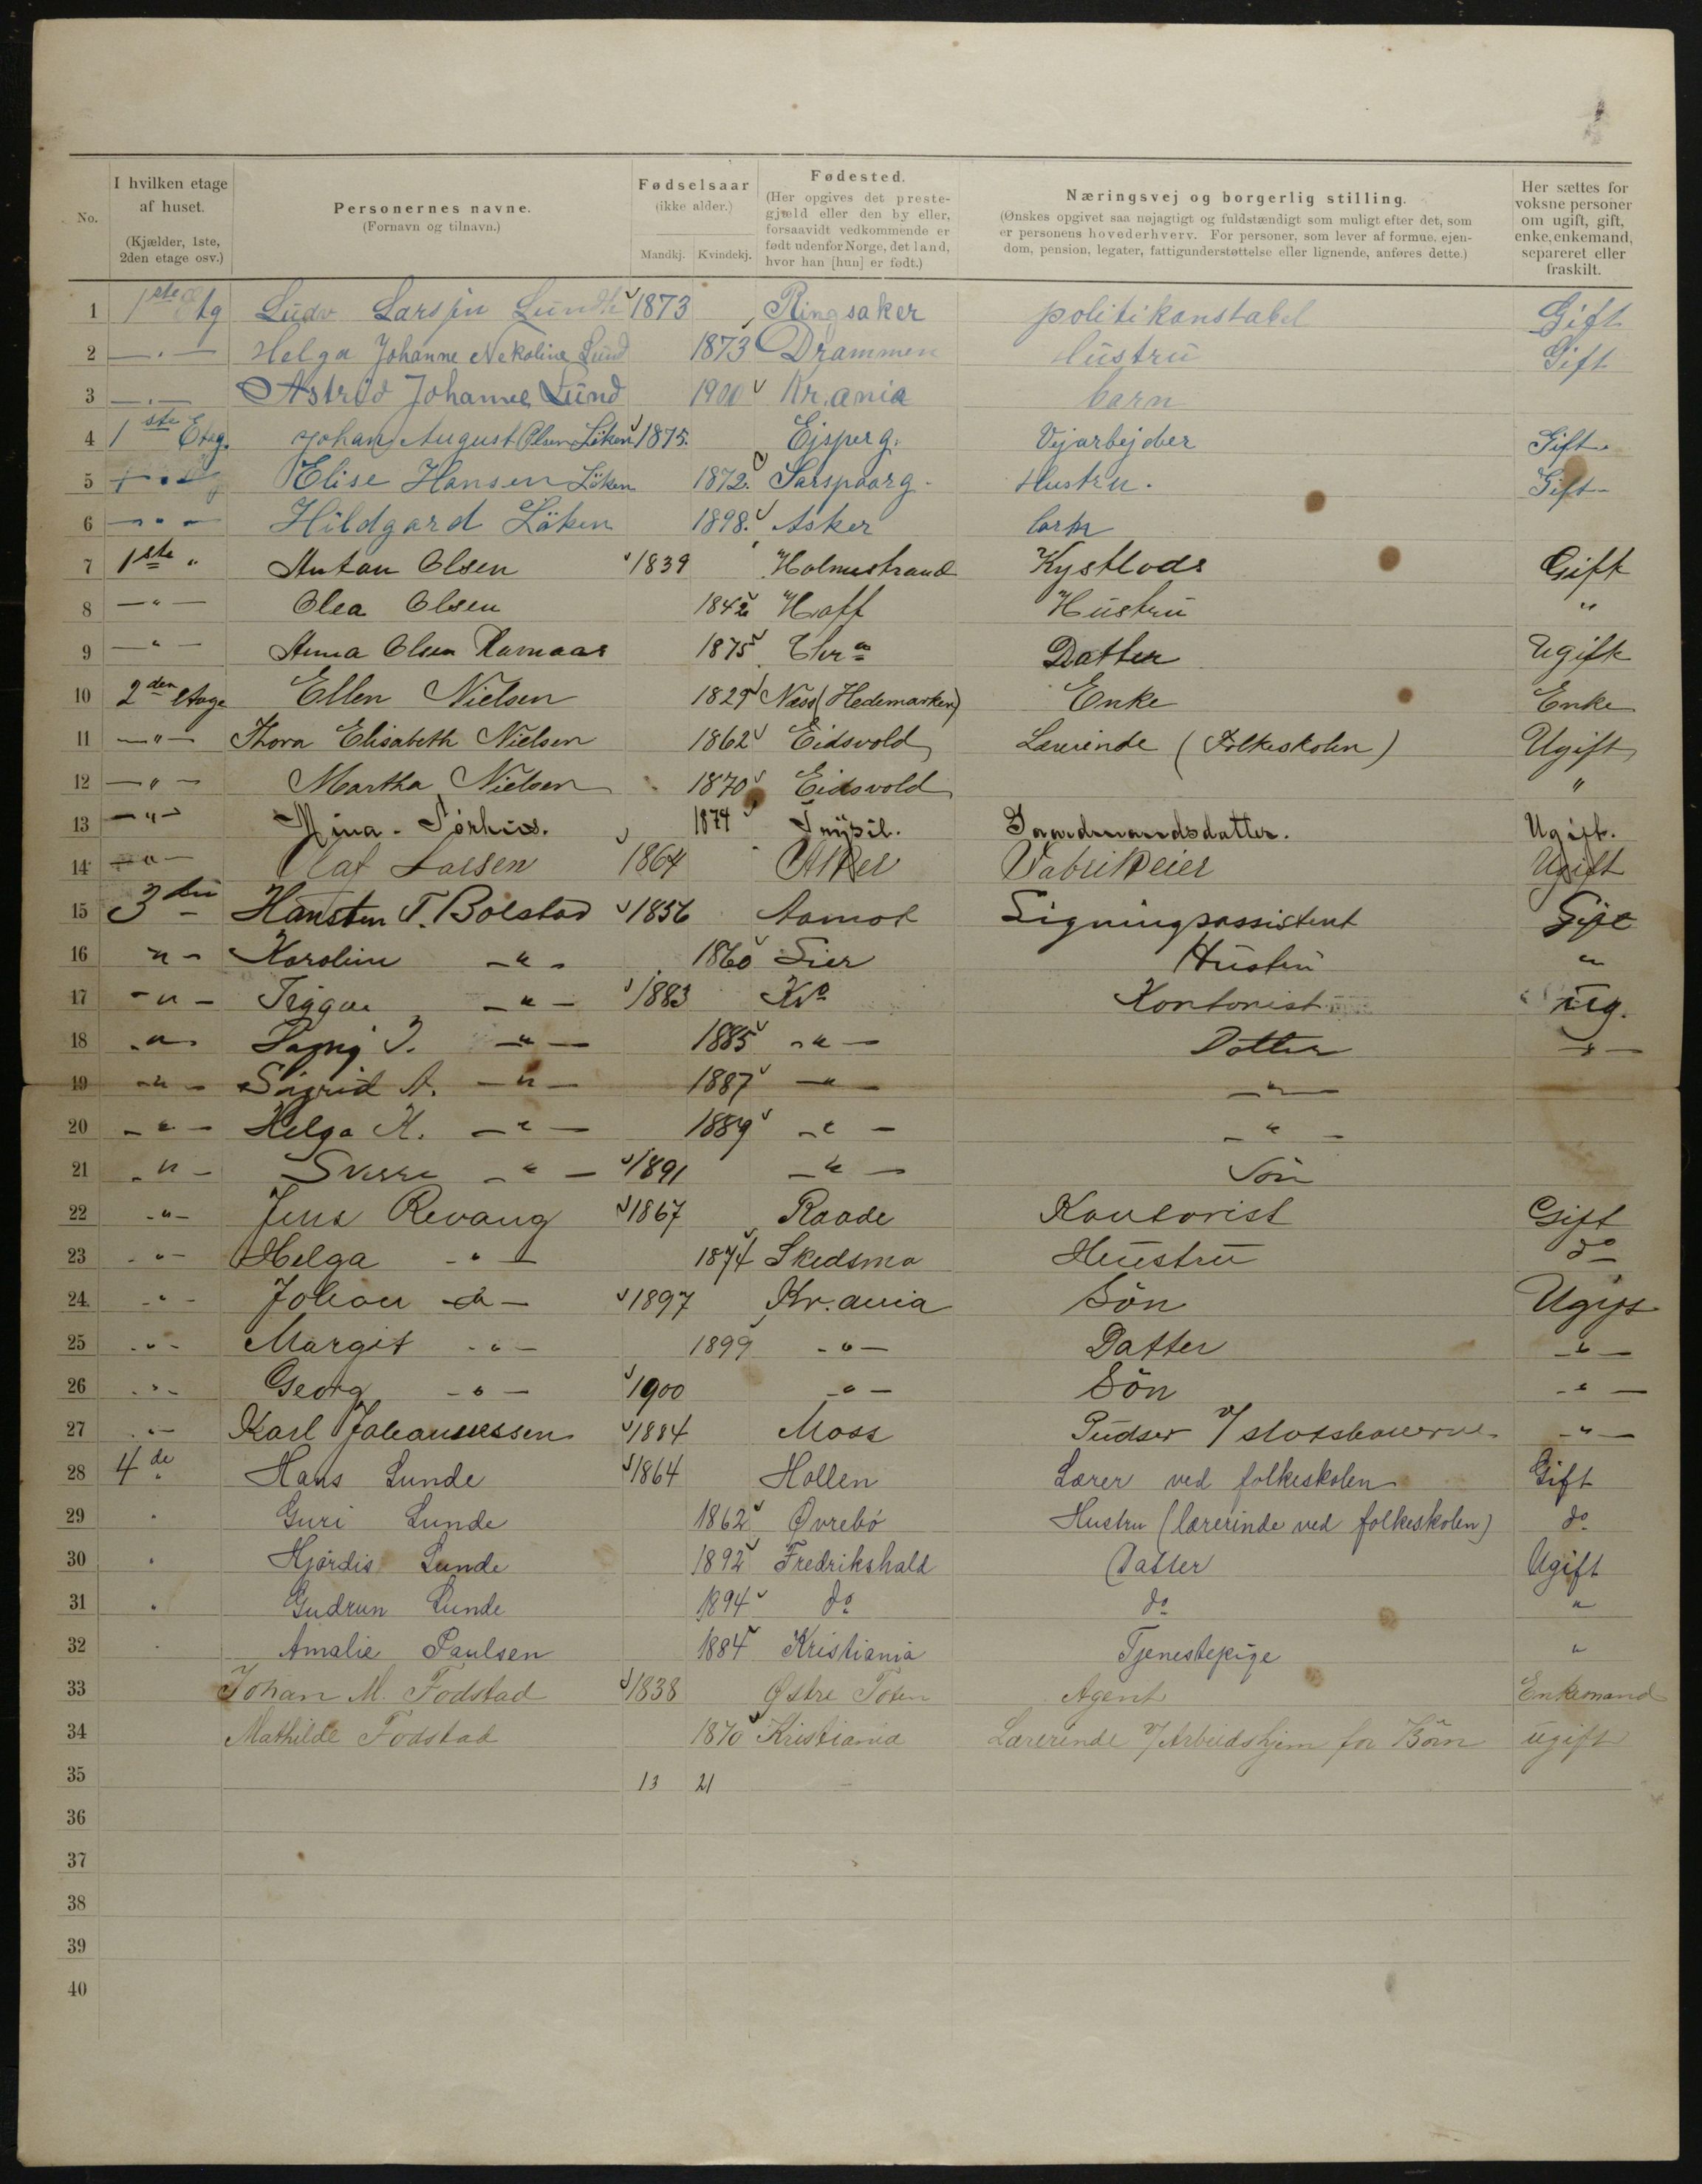 No.
I hvilken etage af huset. (Kjælder, 1ste, 2den etage osv.)
Personernes navne. (Fornavn og tilnavn.)
Fødselsaar (ikke alder.) Mandkj. Kvindekj.
Fødested. (Her opgives det prestegjæld eller den by eller, forsaavidt vedkommende er født udenfor Norge, det land, hvor han [hun] er født.)
Næringsvej og borgerlig stilling. (Ønskes opgivet saa nøjagtigt og fuldstændigt som muligt efter det, som er personens hovederhverv. For personer, som lever af formue, ejendom, pension, legater, fattigunderstøttelse eller lignende, anføres dette.)
Her sættes for voksne personer om ugift, gift, enke, enkemand, separeret eller fraskilt.
1 1ste Etg 1873 Ringsaker politikonstabel Gift
2 — . — Helga Johanne Nekoline Lund 1873 Drammen Hustru Gift
3 — . — Astrid Johanne Lund 1900 Kr.ania barn
4 1ste Etag. Johan August Olsen Löken 1875. Ejsperg. Vejarbejder Gift
5 Elise Hansen Löken 1872. Sarspaarg. Hustru. Gift
6 — " — Hildgard Löken 1898. Asker barn
7 1ste " Anton Olsen 1839 Holmestrand Kystlods Gift
8 — " — Olea Olsen 1842 Haff Hustru "
9 — " — Anna Olsen Ramaas 1875 Chra Datter Ugift
10 2den Etage Ellen Nielsen 1829 Næss (Hedemarken) Enke Enke
11 — " — Thora Elisabeth Nielsen 1862 Eidsvold Lærerinde (Folkeskolen) Ugift
12 — " — Martha Nielsen 1870 Eidsvold "
13 — " — 1874 Trysil. Gaardmandsdatter. Ugift.
14 — " — Olaf Larsen 1864 Aker Fabrikeier Ugift
15 3die Hansten T. Bolstad 1856 Aamot Ligningsassistent Gift
16 — " — Karoline — " — 1860 Lier Hustru "
17 — " — Trygve — " — 1883 Kra Kontorist Ug.
18 — " — — " — 1885 — " — Datter — " —
19 — " — Sigrid A. — " — 1887 — " — — " —
20 — " — Helga K. — " — 1889 — " — — " —
21 — " — Sverre — " — 1891 — " — Sön
22 — " — Jens Revaug 1867 Raade Kontorist Gift
23 — " — Helga — " — 1874 Skedsmo Hustru do
24 — " — Johan — " — 1897 Kr.ania Sön Ugift
25 — " — Margit — " — 1899 — " — Datter — " —
26 — " — Georg — " — 1900 — " — Sön — " —
27 — " — Karl Johannessen 1884 Moss Pudser — " —
28 4de " Hans Lunde 1864 Hollen Lærer ved folkeskolen Gift
29 " Guri Lunde 1862 Øvrebö Hustru (lærerinde ved folkeskolen) do
30 " Hjördis Lunde 1892 Fredrikshald Datter Ugift
31 " Gudrun Lunde 1894 do do "
32 " Amalie Paulsen 1884 Kristiania Tjenestepige "
33 Johan M. Fodstad 1838 Østre Toten Agent Enkemand
34 Mathilde Fodstad 1870 Kristiania Lærerinde v/ Arbeidshjem for Börn ugift
35 13 21
36
37
38
39
40